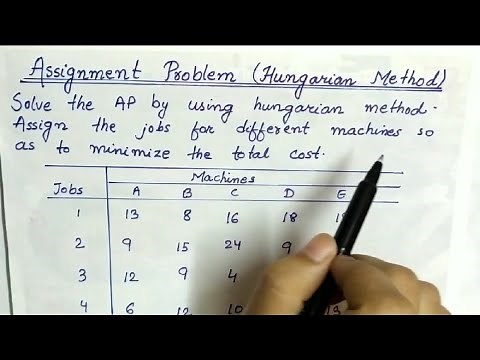 Assignment Problem (Hungarian Method)
Solve the AP by using hungarian method.
Assign the jobs for different machines so
as to minimize the total cost.
Machines
Jobs A B C D E
1 13 8 16 18
2 9 15 24 9
3 12 9 4
4 6 12 10